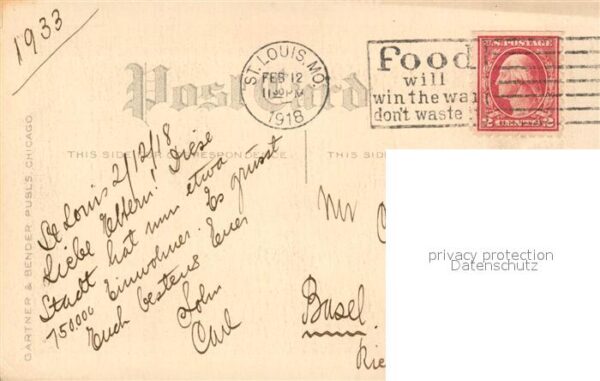 1933
ST. LOUIS, MO.
FEB 12
1130 PM
1918
Food
will
win the war
don't waste it
U.S. POSTAGE
2 2
Post Card
THIS SIDE FOR CORRESPONDENCE
THIS SIDE
GARTNER & BENDER, PUBLS. CHICAGO
St Louis 2/12/18
Liebe Eltern! Diese
Stadt hat nun etwa
750000 Einwohner. Es grüsst
Euch bestens Euer
Sohn
Carl
Mr C
Basel
Rie
privacy protection
Datenschutz